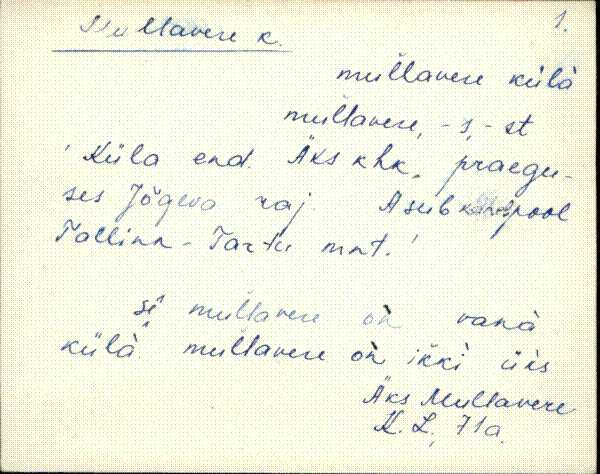 Mullavere k.
1.
mullavere külà
mullavere, -s, -st
' Küla end. Äks khk., praegu-
ses Jõgeva raj. Asub pool
Tallinn - Tartu mnt.'
si̬i̬ mullavere òn vanà
külà mullavere òn ikki üks
Äks Mullavere
K. L., 71a.